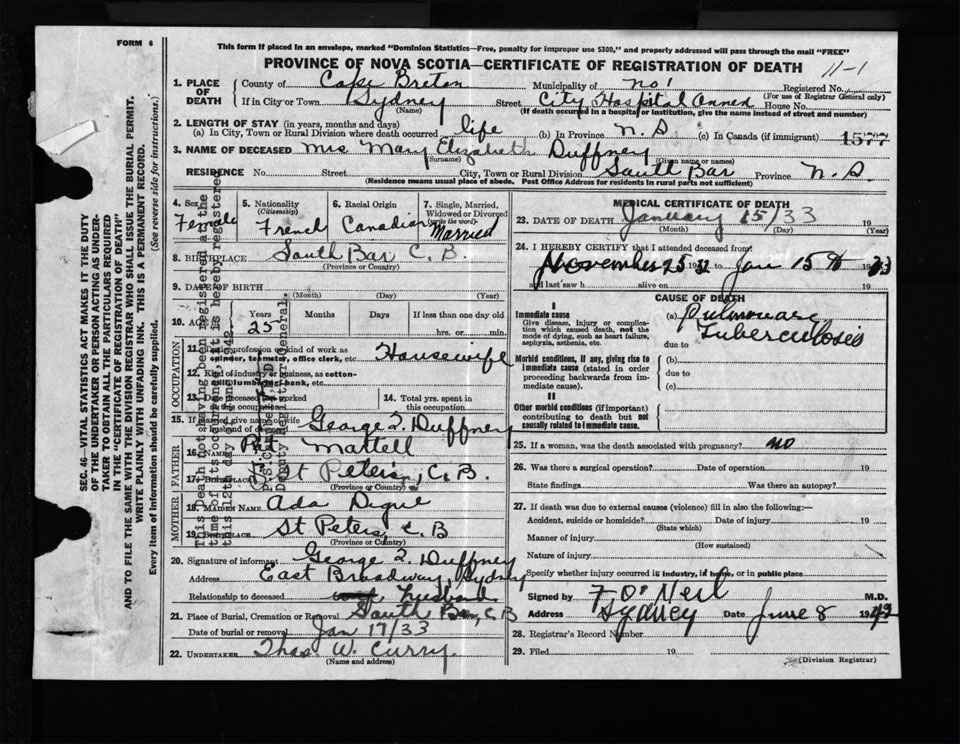 FORM 6
This form if placed in an envelope, marked "Dominion Statistics—Free, penalty for improper use $300," and properly addressed will pass through the mail "FREE"
PROVINCE OF NOVA SCOTIA—CERTIFICATE OF REGISTRATION OF DEATH
11-1
1. PLACE OF DEATH
County of Cape Breton Municipality of No 1 Registered No.
(For use of Registrar General only)
If in City or Town Sydney Street City Hospital Annex House No.
(Name) (If death occurred in a hospital or institution, give the name instead of street and number)
2. LENGTH OF STAY (in years, months and days)
(a) In City, Town or Rural Division where death occurred life (b) In Province N. S. (c) In Canada (if immigrant) 1577
3. NAME OF DECEASED Mrs Mary Elizabeth Duffney
(Surname) (Given name or names)
RESIDENCE No. Street City, Town or Rural Division South Bar Province N. S.
(Residence means usual place of abode. Post Office Address for residents in rural parts not sufficient)
4. Sex Female
5. Nationality (Citizenship) French
6. Racial Origin Canadian
7. Single, Married, Widowed or Divorced (write the word) Married
8. BIRTHPLACE South Bar C. B.
(Province or Country)
9. DATE OF BIRTH
(Month) (Day) (Year)
10. AGE Years 25 Months Days If less than one day old
hrs. or min.
OCCUPATION
11. Trade, profession or kind of work as spinner, teamster, office clerk, etc. Housewife
12. Kind of industry or business, as cotton-mill, lumbering, bank, etc.
13. Date deceased last worked at this occupation
14. Total yrs. spent in this occupation
15. If married give name of wife or husband of deceased George T. Duffney
FATHER
16. NAME Pat Mattell
17. BIRTHPLACE St Peter's, C. B.
(Province or Country)
MOTHER
18. MAIDEN NAME Ada Digue
19. BIRTHPLACE St Peters, C. B
(Province or Country)
20. Signature of informant George T. Duffney
Address East Broadway, Sydney
Relationship to deceased husband
21. Place of Burial, Cremation or Removal South Bar, C B
Date of burial or removal Jan 17/33
22. UNDERTAKER Thos. W. Curry.
(Name and address)
MEDICAL CERTIFICATE OF DEATH
23. DATE OF DEATH January 15/33 19
(Month) (Day) (Year)
24. I HEREBY CERTIFY that I attended deceased from:
November 25 1932 to Jan 15th 1933
and last saw h alive on 19
CAUSE OF DEATH
I
Immediate cause
Give disease, injury or complication which caused death, not the mode of dying, such as heart failure, asphyxia, asthenia, etc.
(a) Pulmonary Tuberculosis
due to
Morbid conditions, if any, giving rise to immediate cause (stated in order proceeding backwards from immediate cause).
(b)
due to
(c)
II
Other morbid conditions (if important) contributing to death but not causally related to immediate cause.
25. If a woman, was the death associated with pregnancy? no
26. Was there a surgical operation? Date of operation 19
State findings Was there an autopsy?
27. If death was due to external causes (violence) fill in also the following:—
Accident, suicide or homicide? Date of injury 19
(State which)
Manner of injury
(How sustained)
Nature of injury
Specify whether injury occurred in industry, in home, or in public place
Signed by F. O'Neil M.D.
Address Sydney Date June 8 1942
28. Registrar's Record Number
29. Filed 19
(Division Registrar)
SEC. 46—VITAL STATISTICS ACT MAKES IT THE DUTY
OF THE UNDERTAKER OR PERSON ACTING AS UNDER-
TAKER TO OBTAIN ALL THE PARTICULARS REQUIRED
IN THE "CERTIFICATE OF REGISTRATION OF DEATH"
AND TO FILE THE SAME WITH THE DIVISION REGISTRAR WHO SHALL ISSUE THE BURIAL PERMIT.
WRITE PLAINLY WITH UNFADING INK. THIS IS A PERMANENT RECORD.
Every item of information should be carefully supplied. (See reverse side for instructions.)
This death not having been registered at the
time of its occurrence, it is hereby registered
this 12th day of 1942.
Deputy Registrar General.